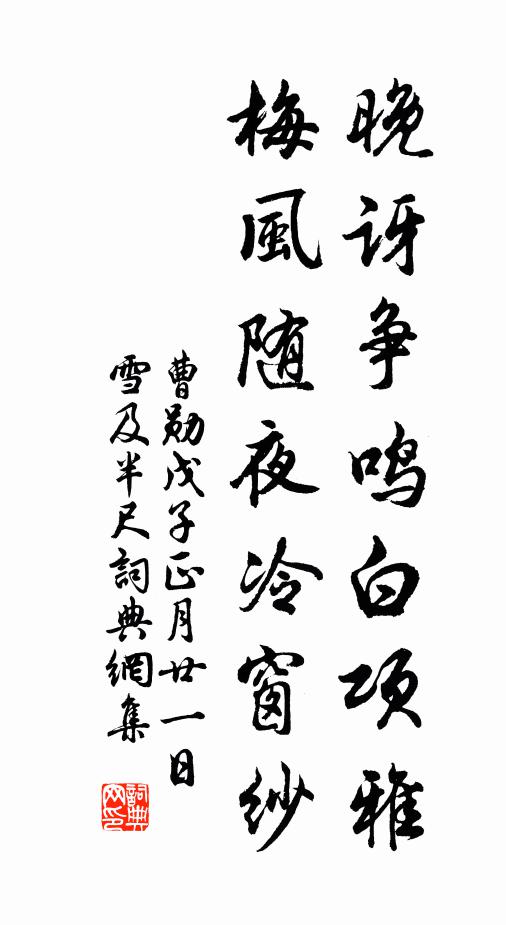 晚訝争鳴白项雅
梅風随夜冷窗紗
曹勛戊子正月廿一日
雪及半尺詞典網集
詞典网印